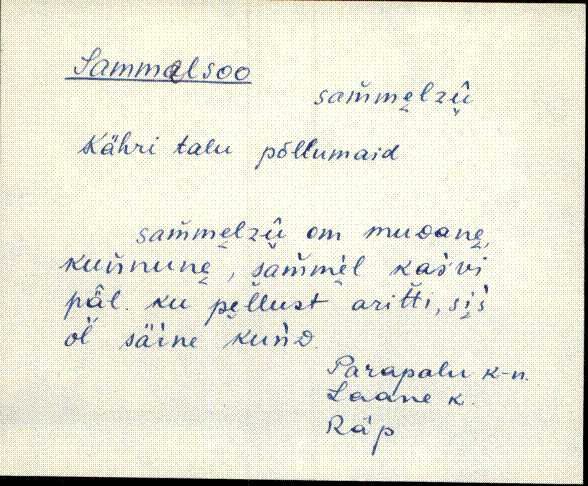 Sammalsoo
sam̆me̬lzû̬
Kähri talu põllumaid
sam̆me̬lzû̬ om muᴅane̬,
kun̆nune̬, sam̆mèl kaśvi
pǟl. ku pe̬llust aritt̆i, si̬ś
õ̭l säine kuńᴅ.
Parapalu k-n.
Laane k.
Räp